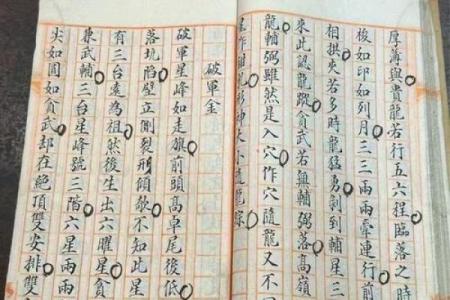 厚薄與貴龍若行五六程臨落之時
後如印如列月三三兩兩牽連行前
相拱夾若多時龍猛勇剝到輔星三
來此認龍蹤貪武若無輔弼落高嶺
龍輔弼雖然是入穴作穴隨龍又不
破軍金
破軍星峰如走旗前頭高卓尾後低
落坑陷壁立側裂形傾欹不知此星
有三台遠為祖然後生出六曜星貪
兼武輔三台星峰號三階六星兩兩
尖如圓如貪武却在絶頂雙安排雙